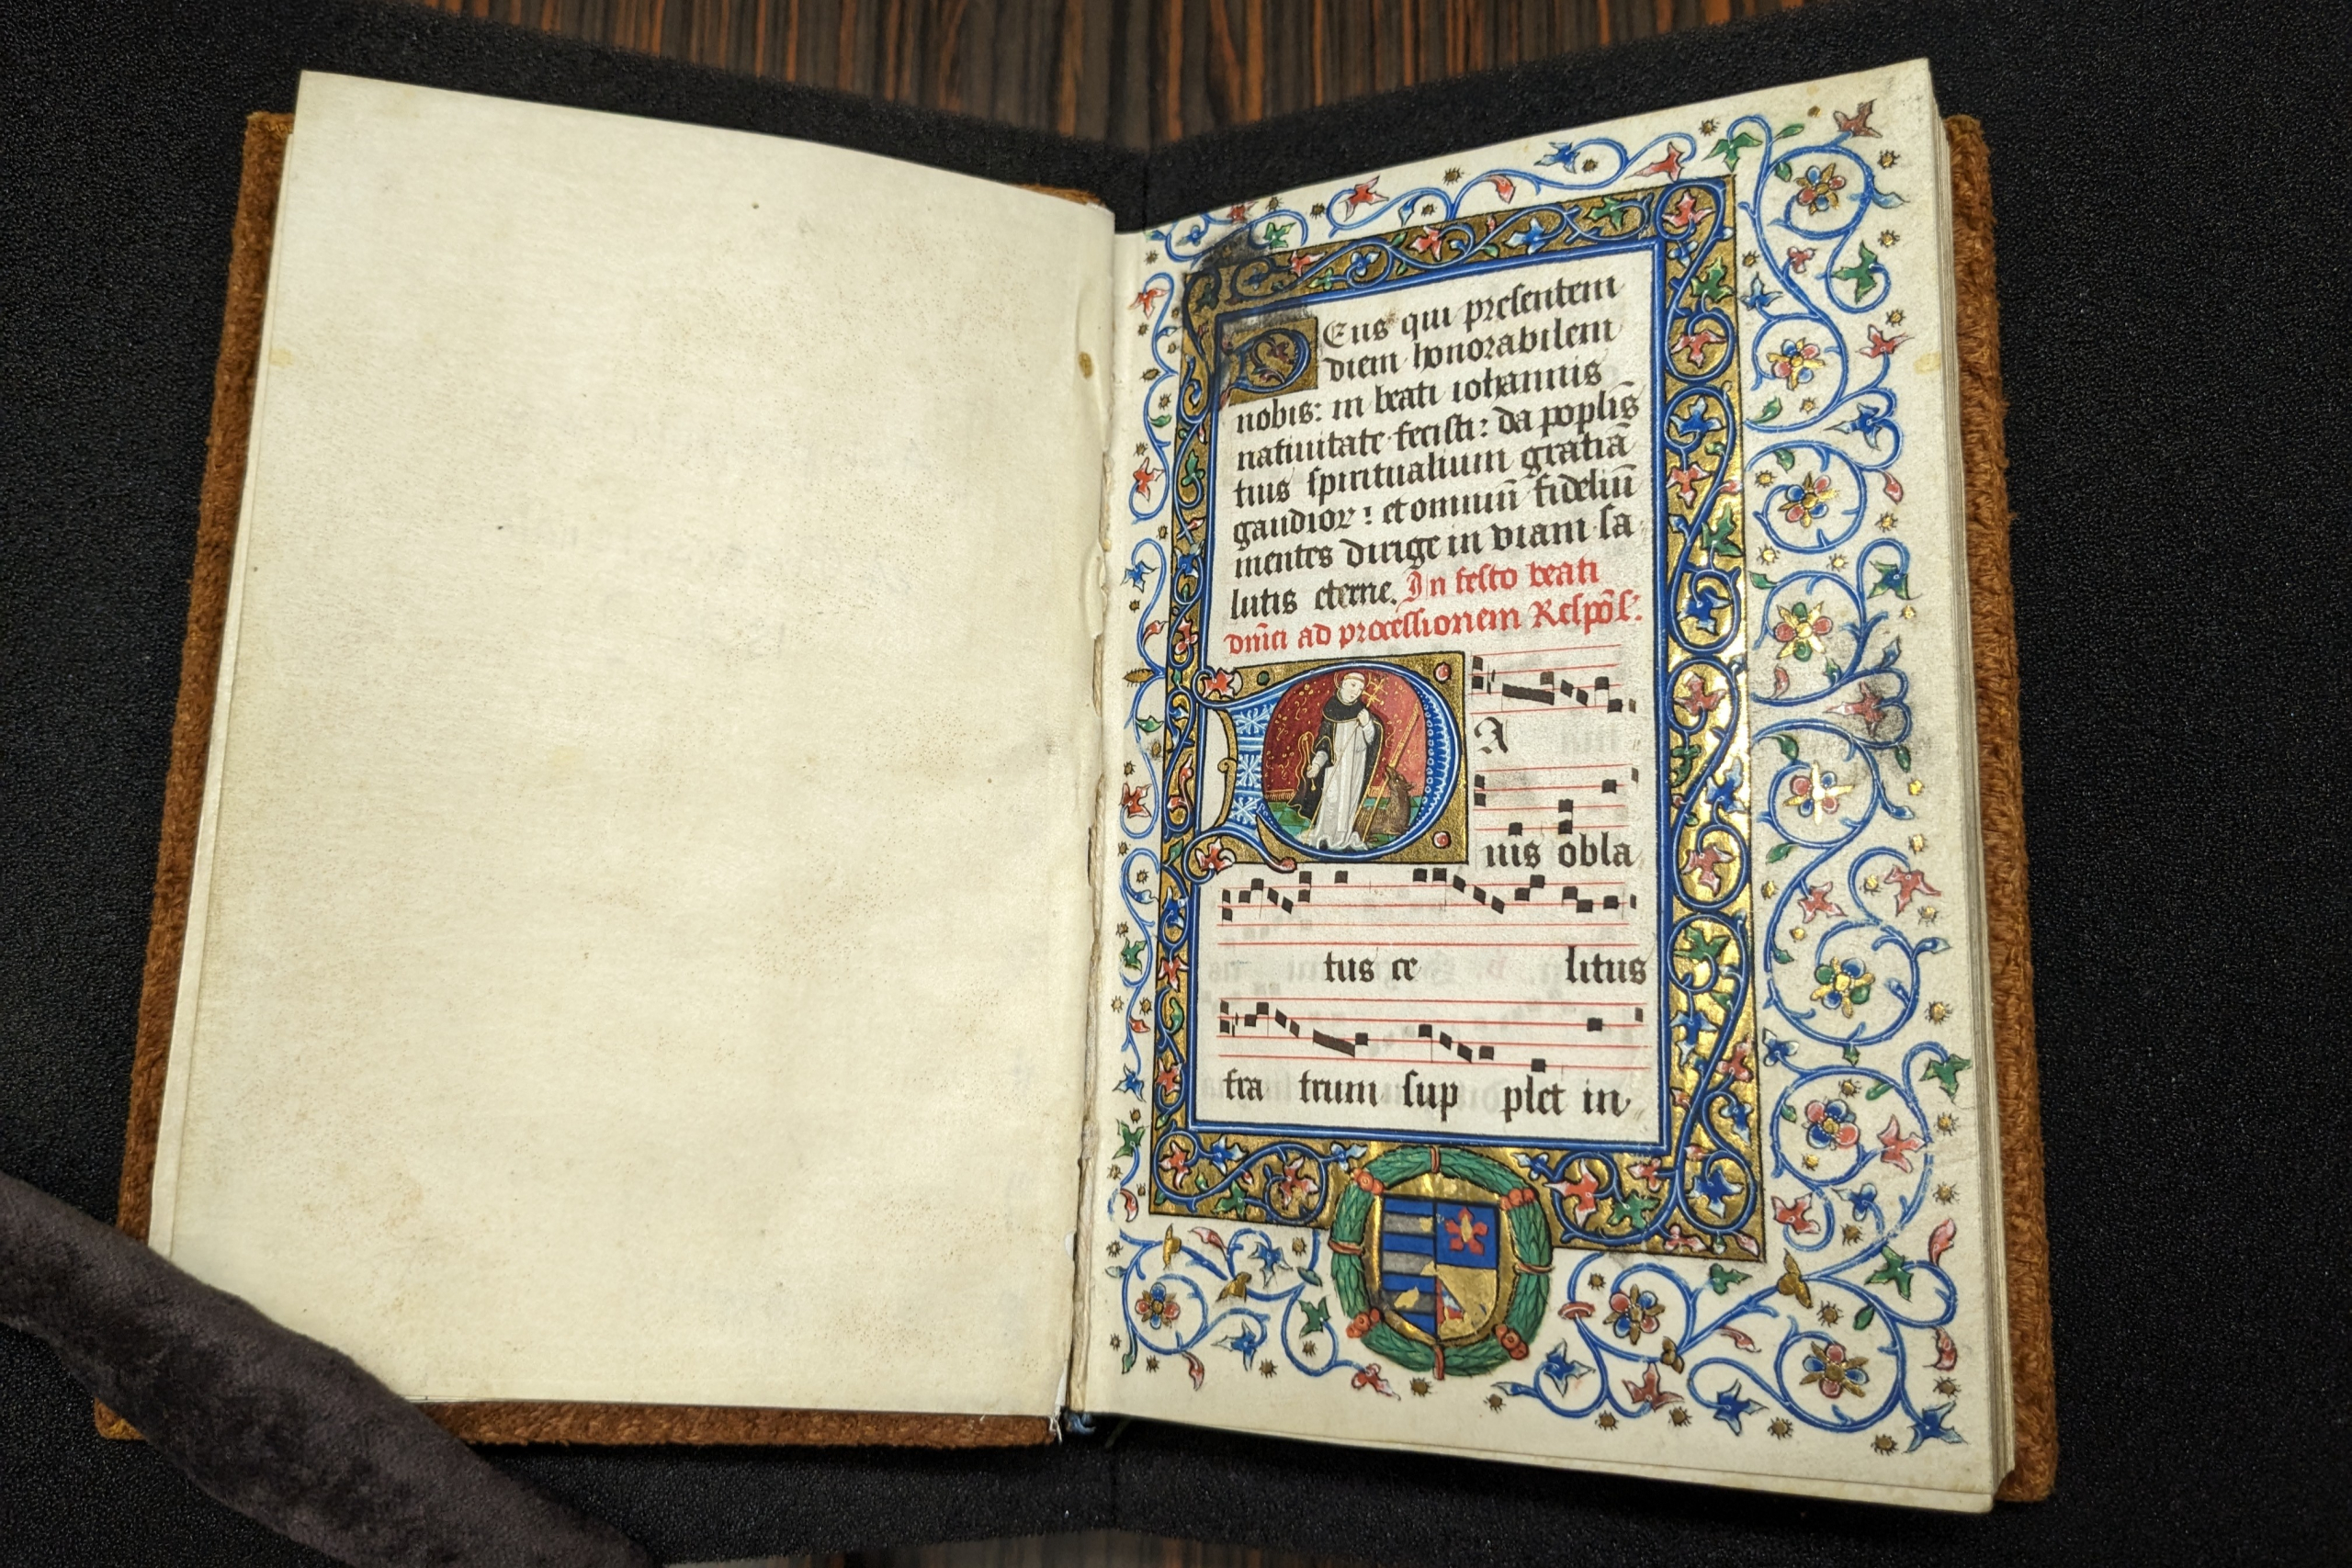 DEus qui presentem
diem honorabilem
nobis: in beati iohannis
natiuitate fecisti: da poplis
tuis spiritualium gratiā
gaudior: et omniū fideliū
mentes dirige in viam sa
lutis eterne. In festo beati
dnīci ad processionem Respōs:
PA
nis obla
tus ce litus
fra trum sup plet in